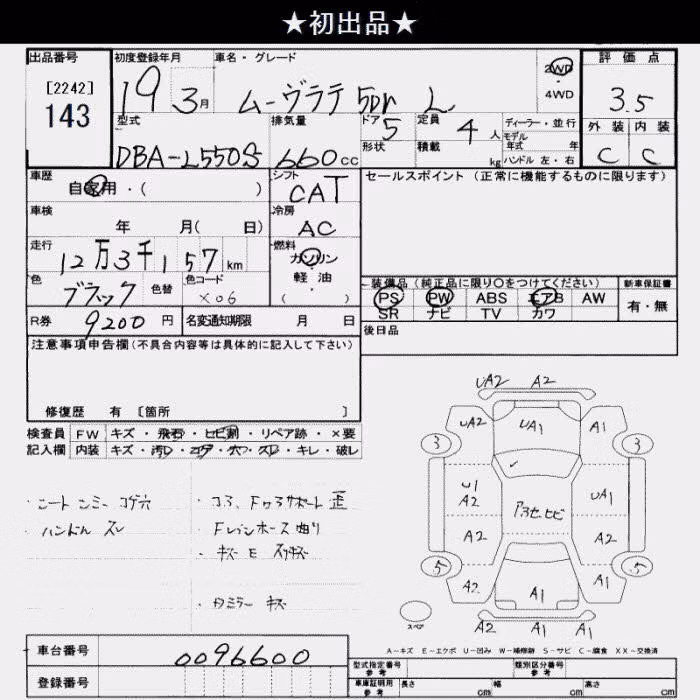 ★初出品★
出品番号
[2242]
143
初度登録年月
19 3月
車名・グレード
ムーヴラテ 5Dr L
2WD
4WD
評価点
3.5
外装 内装
C C
型式
DBA-L550S
排気量
660cc
ドア 5
形状
定員 4人
積載 kg
ディーラー・並行
モデル
年式 年
ハンドル 左・右
車歴
自家用・( )
シフト
CAT
セールスポイント (正常に機能するものに限ります)
車検
年 月( 日)
冷房
AC
走行
12万3千157km
燃料
ガソリン
・
軽油
( )
色
ブラック
色替
色コード
X06
装備品(純正品に限り〇をつけてください)
新車保証書
PS PW ABS エアB AW
有・無
SR ナビ TV カワ
R券
9200円
名変通知期限 月 日
後日品
注意事項申告欄(不具合内容等は具体的に記入して下さい)
修復歴 有 [箇所 ]
検査員 FW キズ・飛石・ヒビ割・リペア跡・×要
記入欄 内装 キズ・汚レ・コゲ・穴・スレ・キレ・破レ
ハンドル スレ
UA2 A2
UA2 UA1 A1
3 3
U1
A2
UA1
A2 A2
5 5
A2 A1 A1
A2 A1 A1
スペア
A-キズ E-エクボ U-凹み W-補修跡 S-サビ C-腐食 XX-交換済
車台番号
0096600
登録番号
型式指定番号
参考
類別区分番号
参考
車庫証明用
参考
長さ cm 幅 cm 高さ cm